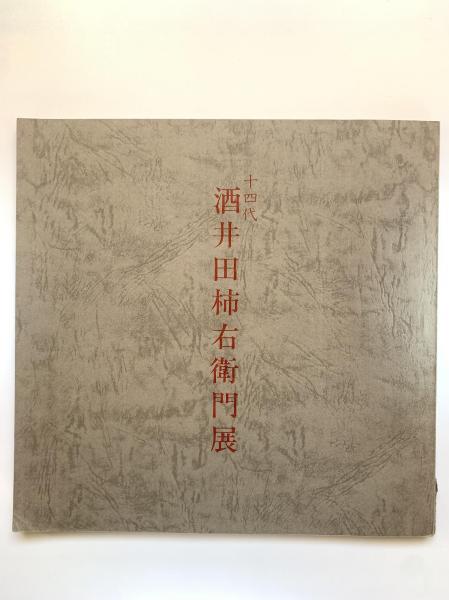 十四代
酒井田柿右衛門展